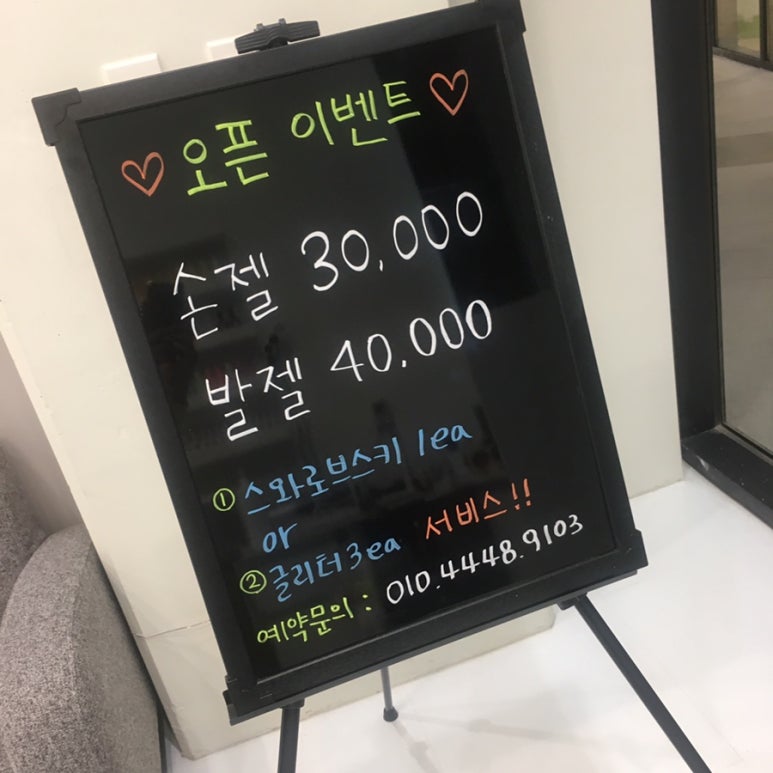 ♡ 오픈 이벤트 ♡
손젤 30,000
발젤 40,000
① 스와로브스키 1ea
or
② 글리터 3ea 서비스!!
예약문의 : 010.4448.9103